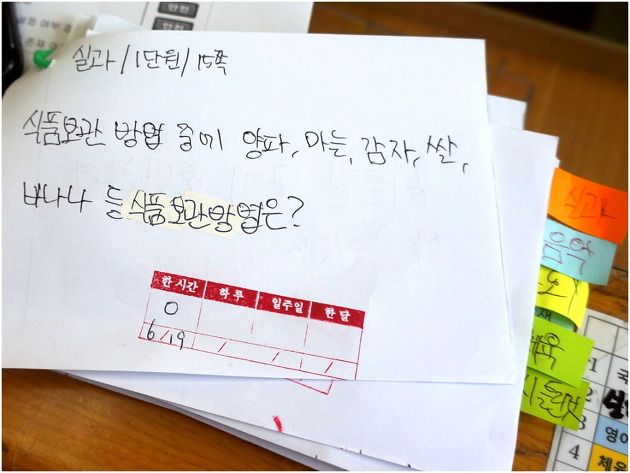 안전
안전
실과/1단원/15쪽
식품보관 방법 중에 양파, 마늘, 감자, 쌀,
바나나 등 식품보관방법은?
한시간 하루 일주일 한달
O
6/19 / / /
실과
음악
1 국
2
3 영어
4 체육